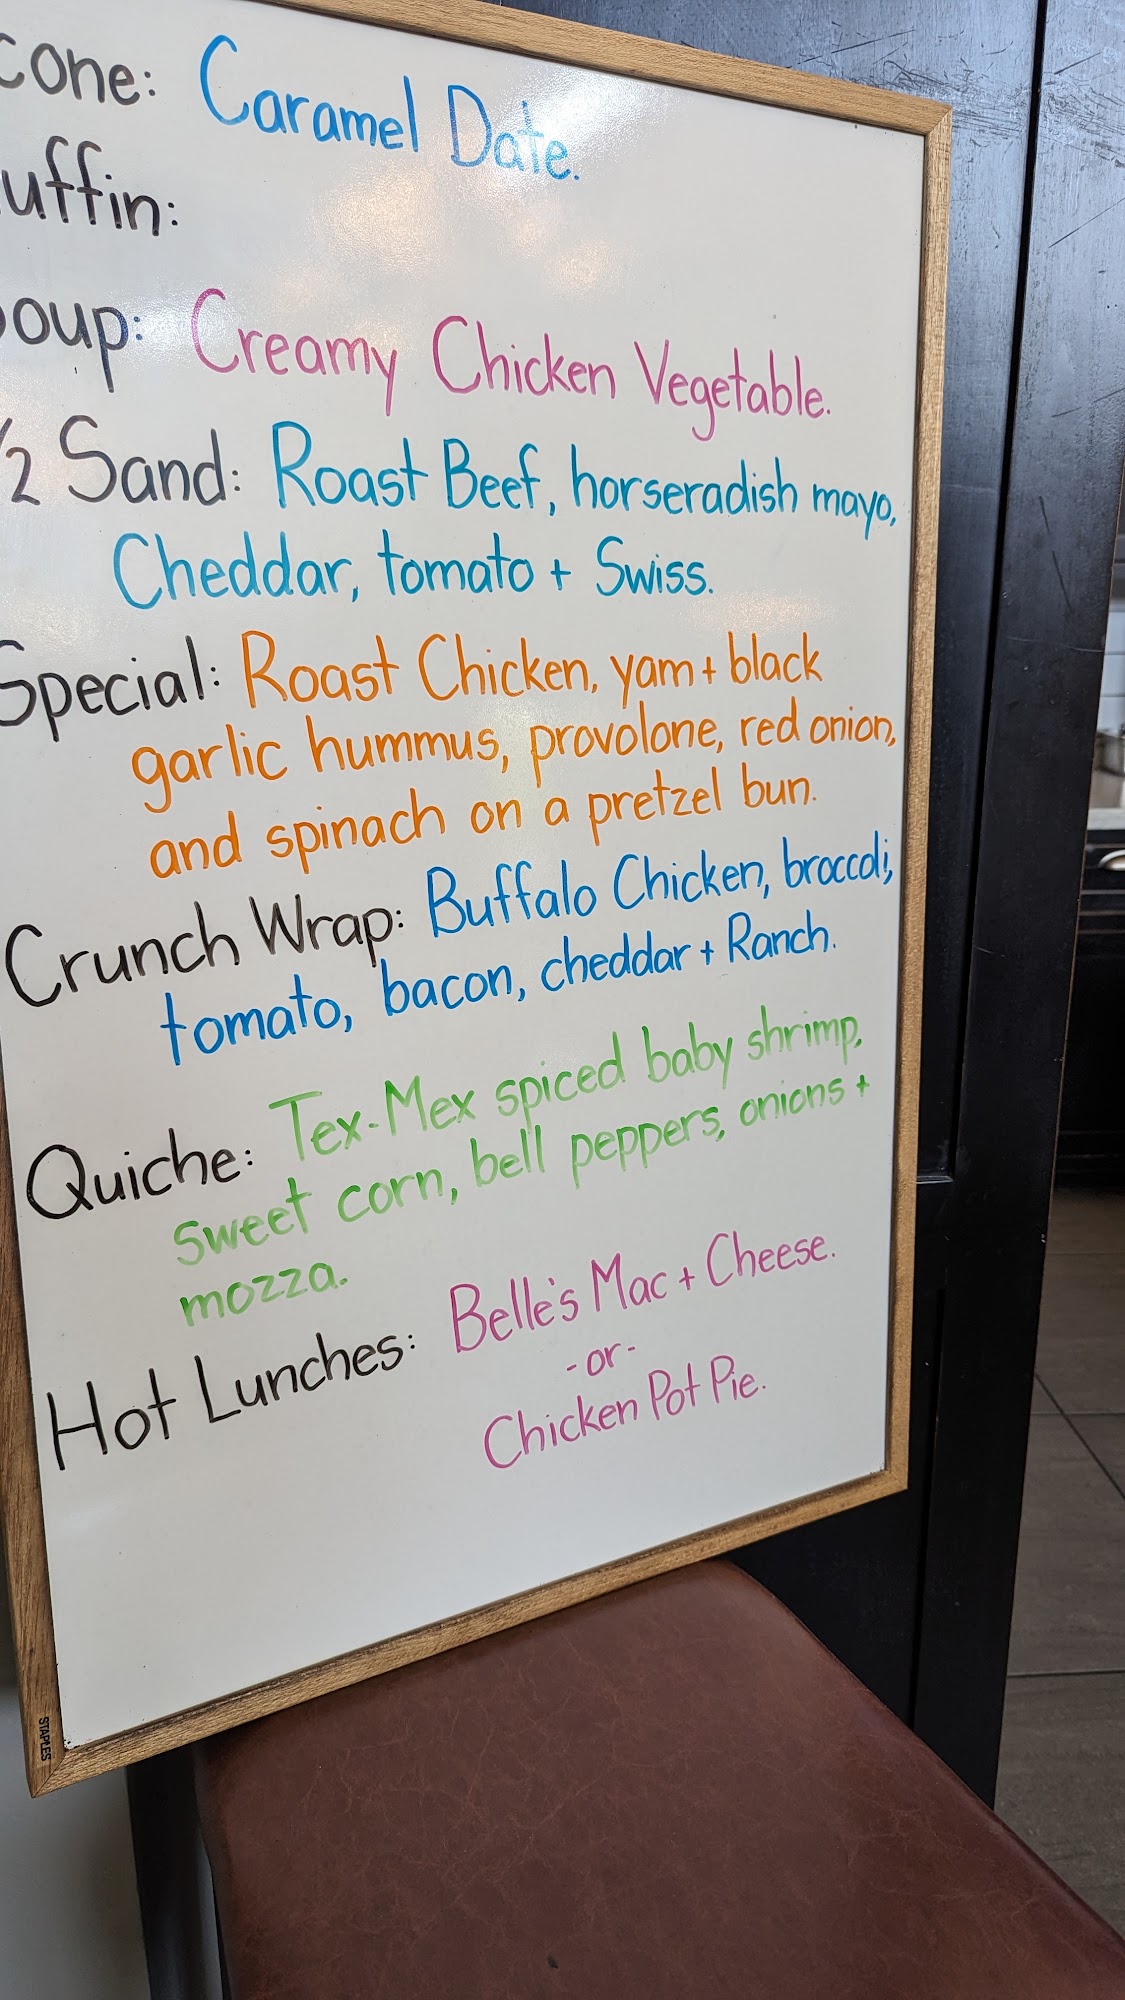 cone: Caramel Date.
uffin:
oup: Creamy Chicken Vegetable.
1/2 Sand: Roast Beef, horseradish mayo,
Cheddar, tomato + Swiss.
Special: Roast Chicken, yam + black
garlic hummus, provolone, red onion,
and spinach on a pretzel bun.
Crunch Wrap: Buffalo Chicken, broccoli,
tomato, bacon, cheddar + Ranch.
Quiche: Tex-Mex spiced baby shrimp,
sweet corn, bell peppers, onions +
mozza.
Hot Lunches: Belle's Mac + Cheese.
-or-
Chicken Pot Pie.
STAPLES